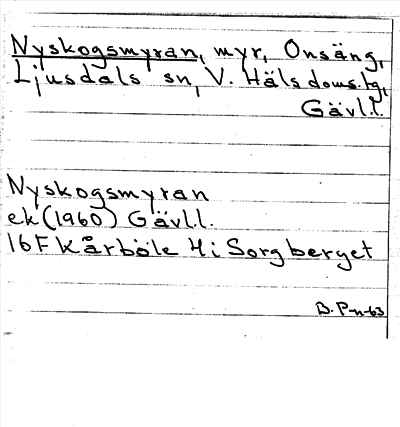 Nyskogsmyran, myr, Onsäng,
Ljusdals sn, V. Hälsdoms.tg,
Gävl.l.
Nyskogsmyran
ek (1960) Gävl.l.
16F Kårböle 4i Sorgberget
B. P-n-63